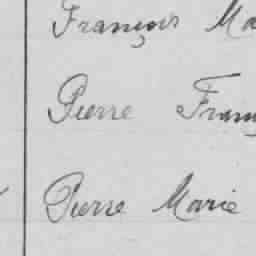 François Ma
Pierre Franç
Pierre Marie